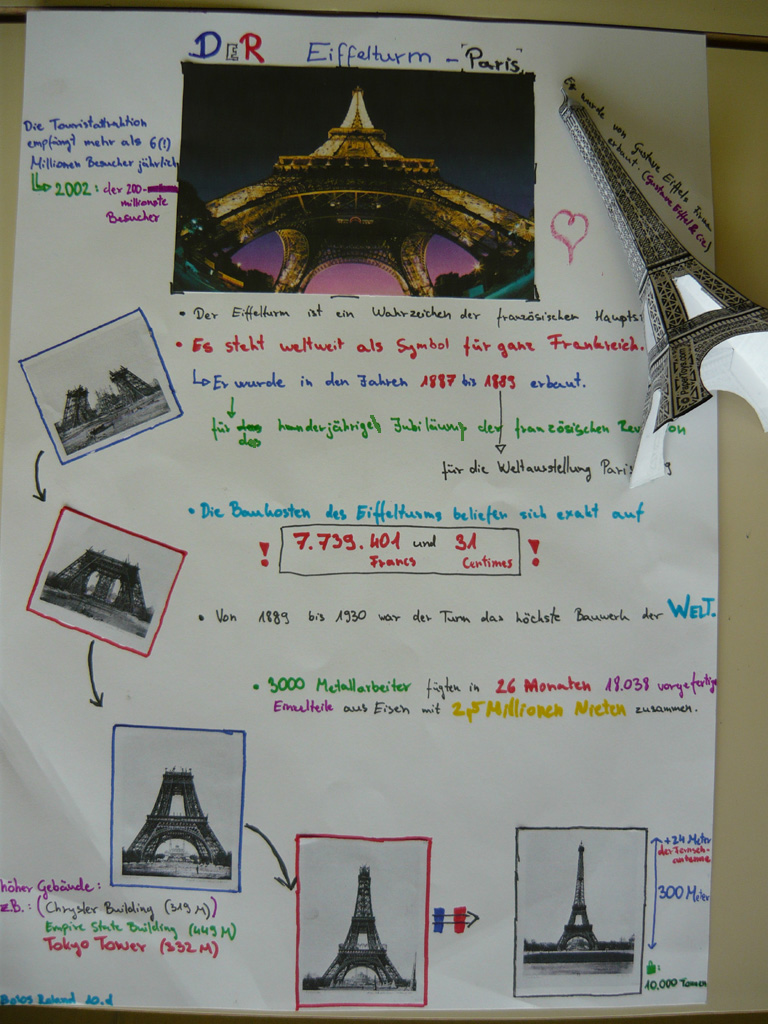 DER Eiffelturm - Paris
Die Touristattraktion
empfängt mehr als 6(!)
Millionen Besucher jährlich
2002: der 200-
millionste
Besucher
Es wurde von Gustave Eiffels Firma
erbaut. (Gustave Eiffel & Cie)
• Der Eiffelturm ist ein Wahrzeichen der französischen Haupts
• Es steht weltweit als Symbol für ganz Frankreich.
Er wurde in den Jahren 1887 bis 1889 erbaut.
für das hunderjähriges Jubiläum der französischen Rev on
des
für die Weltausstellung Paris
• Die Baukosten des Eiffelturms beliefen sich exakt auf
! 7.739.401 und 31 !
Francs Centimes
• Von 1889 bis 1930 war der Turm das höchste Bauwerk der WELT.
• 3000 Metallarbeiter fügten in 26 Monaten 18.038 vorgefertige
Einzelteile aus Eisen mit 2,5 Millionen Nieten zusammen.
+24 Meter
der Fernseh-
antenne
300 Meter
10.000 Tonnen
höher Gebäude:
z.B.: (Chrysler Building (319 M))
Empire State Building (449 M)
Tokyo Tower (332 M)
Roland 10.d